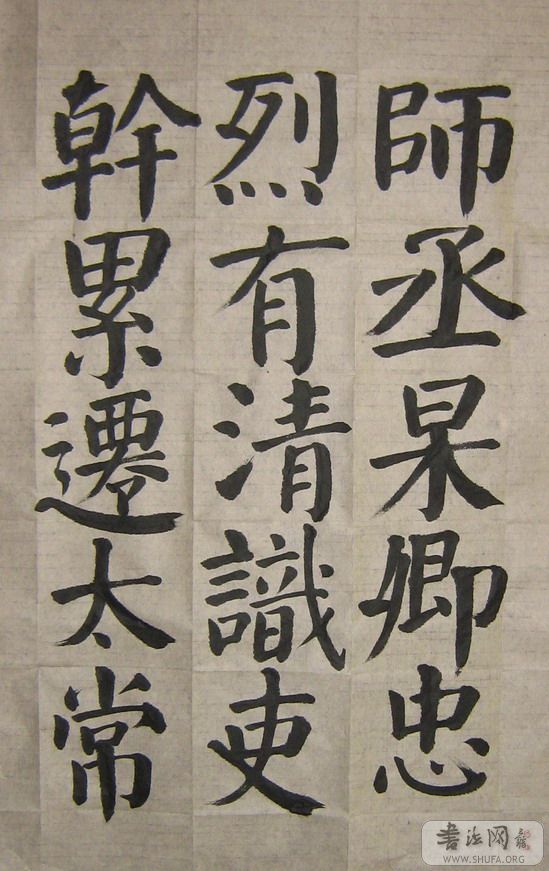 師丞杲卿忠
烈有清識吏
幹累遷太常
書法网
WWW.SHUFA.ORG